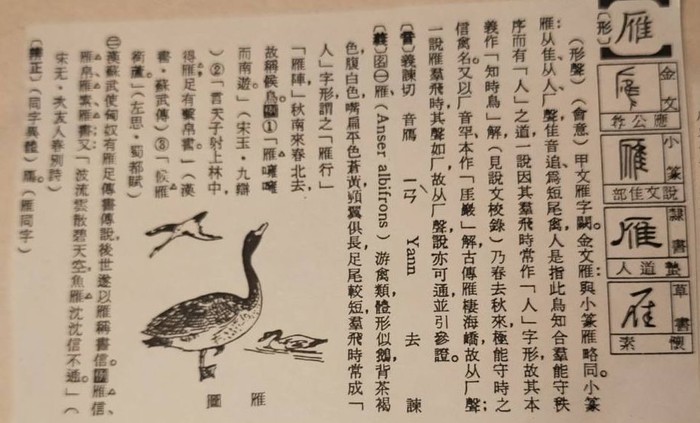 雁
金文
應公鼎
小篆
說文隹部
隸書
塾道人
草書
懷素
〔形〕
(形聲)(會意)甲文雁字闕。金文雁:雁與小篆雁略同。小篆
雁:从隹、从人、厂聲,隹音追爲短尾禽,人是指此鳥知合羣能守秩
序而有「人」之道,一說因其羣飛時常作「人」字形,故其本
義作「知時鳥」解(見說文校錄)乃春去秋來極能守時之
信禽名。又以厂音罕本作「厓巖」解,古傳雁棲海嶠,故从厂聲;
一說雁羣飛時其聲如厂,故从厂聲,說亦可通,並引參證。
〔音〕義諫切 音鴈 ㄧㄢˋ Yann 去 諫
〔義〕圖㊀雁(Anser albifrons)游禽類,體形似鵝,背茶褐
色,腹白色,嘴扁平色蒼黃,頸翼俱長,足尾較短,羣飛時常成「
人」字形,謂之「雁行」
「雁陣」秋南來春北去
故稱候鳥。①「雁噰噰
而南遊。」(宋玉・九辯
)②「言天子射上林中,
得雁足有繫帛書。」(漢
書・蘇武傳)③「候雁
銜蘆。」(左思・蜀都賦)
㊁漢蘇武使匈奴有雁足傳書傳說,後世遂以雁稱書信:雁信、
雁帛、雁素、雁書;又「波流雲散碧天空,魚雁沈沈信不通。」(
宋无・次友人春別詩)
〔辨正〕(同字異體)鴈(雁同字)
雁
圖